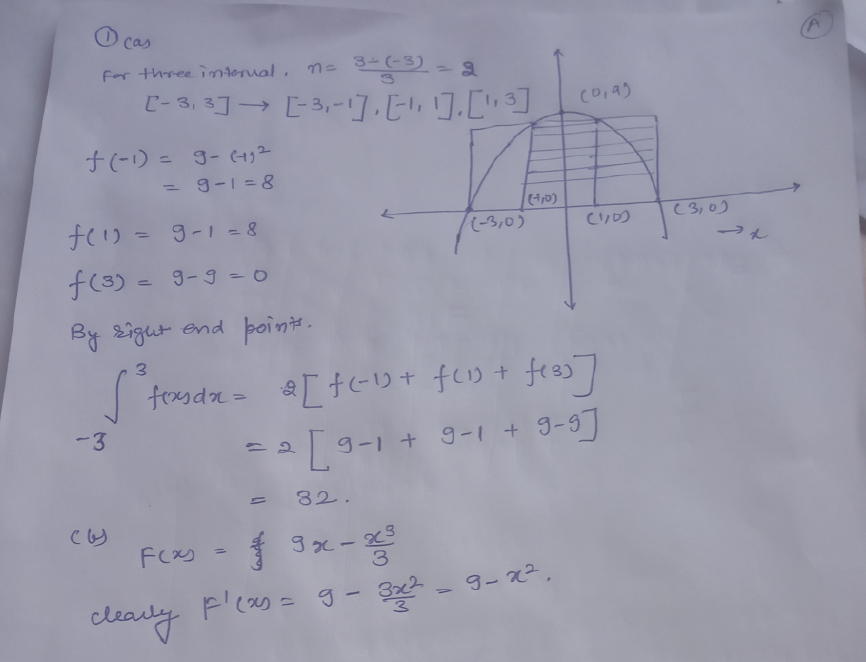 A
① (a)
For three interval. n = 3-(-3)/3 = 2
[-3, 3] → [-3,-1], [-1, 1], [1, 3]
f(-1) = 9-(-1)²
= 9-1 = 8
f(1) = 9-1 = 8
f(3) = 9-9 = 0
(0,9)
(-3,0)
(-1,0)
(1,0)
(3,0)
→ x
By right end points.
∫₋₃³ f(x)dx = 2[f(-1) + f(1) + f(3)]
= 2[9-1 + 9-1 + 9-9]
= 32.
(b)
F(x) = 9x - x³/3
clearly F'(x) = 9 - 3x²/3 = 9-x².